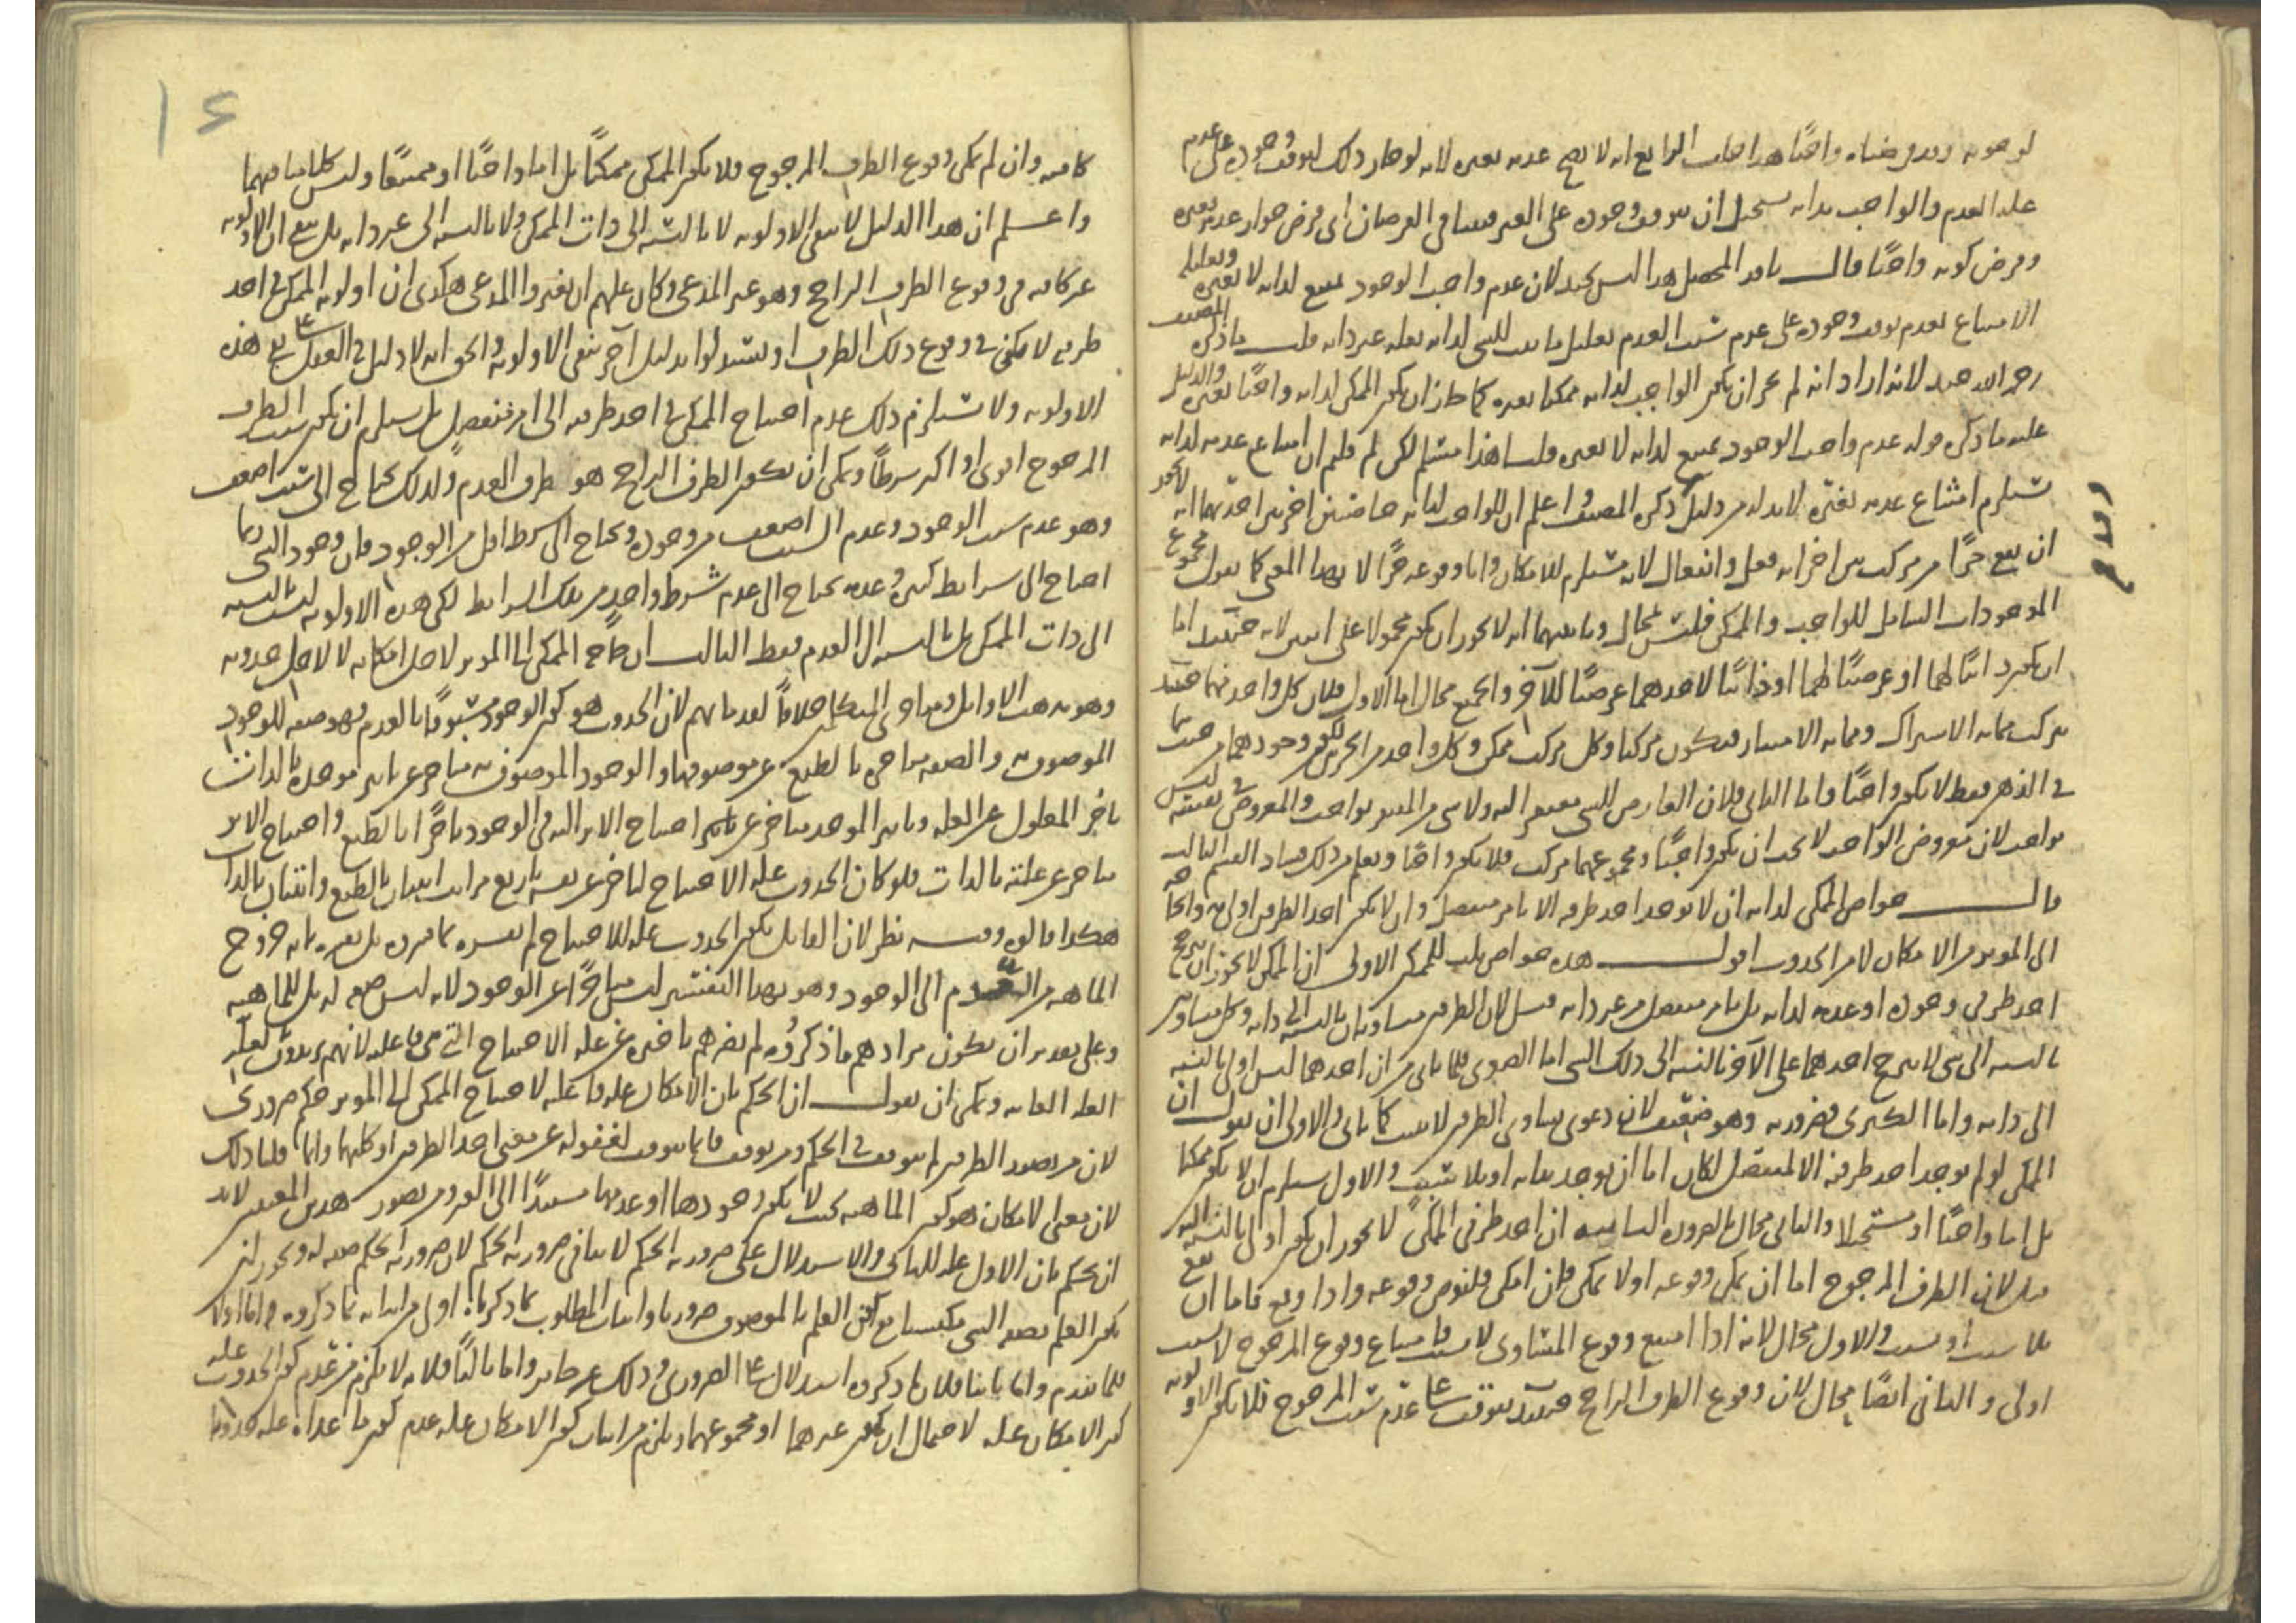 لوجوبه وقد فرضناه واجبًا هذا خلف الرابع انه لا يصح عدمه بغيره لانه لو جاز ذلك لتوقف وجوده على عدم
علة العدم والواجب بذاته يستحيل ان يتوقف وجوده على الغير فتنافى الفرضان اى فرض جواز عدمه بغيره
وفرض كونه واجبًا قال ناقد المحصل هذا ليس بجيد لان عدم واجب الوجود ممتنع لذاته لا بغيره وتعليل
الامتناع بعدم توقف وجوده على عدم سبب العدم تعليل ما يثبت للشى لذاته بعلة غير ذاته قلت ما ذكره المصنف
رحمه الله جيد لانه اراد انه لم يجز ان يكون الواجب لذاته ممكنا بغيره كما جاز ان يكون الممكن لذاته واجبًا بغيره والدليل
عليه ما ذكره قوله عدم واجب الوجود ممتنع لذاته لا بغيره قلنا هذا مسلم لكن لم قلتم ان امتناع عدمه لذاته
يستلزم امتناع عدمه بغيره لابد له من دليل ذكره المصنف واعلم ان للواجب لذاته خاصيتين اخريين احديهما انه لا يجوز
ان يقع جزًا من مركب بين اجزائه فعل وانفعال لانه مستلزم للامكان واما وقوعه جزًا لا بهذا المعنى كما يقول مجموع
الموجودات الشامل للواجب والممكن فليس بمحال وثانيتهما انه لا يجوز ان يكون محمولا على اثنين لانه حينئذ اما
ان يكون ذاتيًا لهما او عرضيًا لهما او ذاتيًا لاحدهما عرضيًا للآخر والجميع محال اما الاول فلان كل واحد منهما حينئذ
مركب مما به الاشتراك ومما به الامتياز فيكون مركبا وكل مركب ممكن وكل واحد من الجزئين لكون وجودهما من حيث هما
فى الذهن فقط لا يكون واجبًا واما الثانى فلان العارض للشى مفتقر اليه ولا شى من المفتقر بواجب والمعروض فى نفسه ليس
بواجب لان معروض الواحد لا يجب ان يكون واجبًا ومجموعهما مركب فلا يكون واجبا ويعلم من ذلك فساد القسم الثالث
قال خواص الممكن لذاته ان لا يوجد احد طرفيه الا بامر منفصل وان لا يكون احد الطرفين اولى به والحاجة
الى المؤثر من الامكان لا من الحدوث اقول هذه خواص ثلث للممكن الاولى ان الممكن لا يجوز ان يترجح
احد طرفى وجوده او عدمه لذاته بل بامر منفصل من غير ذاته قيل لان الطرفين متساويان بالنسبة الى ذاته وكل متساويين
بالنسبة الى شى لا يترجح احدهما على الآخر بالنسبة الى ذلك الشى اما الصغرى فلما ياتى من ان احدهما ليس اولى بالنسبة
الى ذاته واما الكبرى فضرورية وهو ضعيف لان دعوى تساوى الطرفين لا يثبت كما ياتى والاولى ان يقول ان
الممكن لو لم يوجد احد طرفيه الا لمنفصل لكان اما ان يوجد بذاته او بلا سبب والاول يستلزم ان لا يكون ممكنا
بل اما واجبًا او مستحيلا والثانى محال بالضرورة الثانية ان احد طرفى الممكن لا يجوز ان يكون اولى بالنسبة اليه
قيل لان الطرف المرجوح اما ان يمكن وقوعه اولا يمكن فان امكن فليفرض وقوعه واذا وقع فاما ان يقع
بلا سبب او بسبب والاول محال لانه اذا امتنع وقوع المتساوى لا بسبب فامتناع وقوع المرجوح لا بسبب
اولى والثانى ايضًا محال لان وقوع الطرف الراجح حينئذ يتوقف على عدم سبب المرجوح فلا يكون الاولوية
كافية وان لم يمكن وقوع الطرف المرجوح فلا يكون الممكن ممكنًا بل اما واجبًا او ممتنعًا وليس كلامنا فيهما
واعلم ان هذا الدليل لا ينفى الاولوية لا بالنسبة الى ذات الممكن ولا بالنسبة الى غير ذاته بل ينتج ان الاولوية
غير كافية فى وقوع الطرف الراجح وهو غير المدعى وكان عليهم ان يغيروا المدعى هكذى ان اولوية الممكن فى احد
طرفيه لا يكفى فى وقوع ذلك الطرف او يستدلوا بدليل آخر ينفى الاولوية والحق انه لا دليل فى العقل على نفى هذه
الاولوية ولا يستلزم ذلك عدم احتياج الممكن فى احد طرفيه الى امر منفصل بل يستلزم ان يكون سبب الطرف
المرجوح اقوى او اكثر شرطًا ويمكن ان يكون الطرف الراجح هو طرف العدم ولذلك يحتاج الى سبب اضعف
وهو عدم سبب الوجود وعدم السبب اضعف من وجوده ويحتاج الى شرط اقل من الوجود فان وجود الشى ربما
احتاج الى شرايط كثيرة وعدمه يحتاج الى عدم شرط واحد من تلك الشرايط لكن هذه الاولوية ليست بالنسبة
الى ذات الممكن بل بالنسبة الى العدم فقط الثالث ان احتياج الممكن الى المؤثر لاجل امكانه لا لاجل حدوثه
وهو مذهب الاوايل ومتاخرى المتكلمين خلافًا لقدمائهم لان الحدوث هو كون الوجود مسبوقًا بالعدم فهو صفة للوجود
الموصوف به والصفة متاخرة بالطبع عن موصوفها والوجود الموصوف به متاخر عن تاثير موجده بالذات
تاخر المعلول عن العلة وتاثير الموجد متاخر عن احتياج الاثر اليه فى الوجود تاخرًا بالطبع واحتياج الاثر
متاخر عن علته بالذات فلو كان الحدوث علة الاحتياج لتاخر عن نفسه باربع مراتب اثنان بالطبع واثنان بالذات
هكذا قالوه وفيه نظر لان القايل بكون الحدوث علة للاحتياج لم يفسره بما مر بل يفسره بانه خروج
الماهية من العدم الى الوجود وهو بهذا التفسير ليس متاخرًا عن الوجود لانه ليس صفة له بل للماهية
وعلى تقدير ان يكون مرادهم ما ذكروه لم يضرهم تاخيره عن علة الاحتياج التى هى فاعلة لانهم يريدون بالعلة
العلة الغائية ويمكن ان يقول ان الحكم بان الامكان علة فاعلة لاحتياج الممكن الى المؤثر حكم ضرورى
لان من تصور الطرفين لم يتوقف فى الحكم ومن توقف فانما يتوقف لغفوله عن معنى احد الطرفين او كليهما وانما قلنا ذلك
لان معنى الامكان هو كون الماهية بحيث لا يكون وجودها او عدمها مستندًا الى الغير ومن تصور هذين المعنيين لابد
ان يحكم بان الاول علة للثانى والاستدلال على ضرورية الحكم لا ينافى ضرورية الحكم لان ضرورية الحكم صفة له ويجوز ان
يكون العلم بصفة الشى مكتسبا مع كون العلم بالموصوف ضروريا واثبات المطلوب بما ذكرناه اولى من اثباته بما ذكروه اما اولا
فلما تقدم واما ثانيا فلان ما ذكروه استدلال على الضرورى وذلك غير جايز واما ثالثًا فلانه لا يلزم من عدم كون الحدوث علة
كون الامكان علة لاحتمال ان يكون غيرهما او مجموعهما ويلزم من اثبات كون الامكان علة عدم كون ما عداه علة